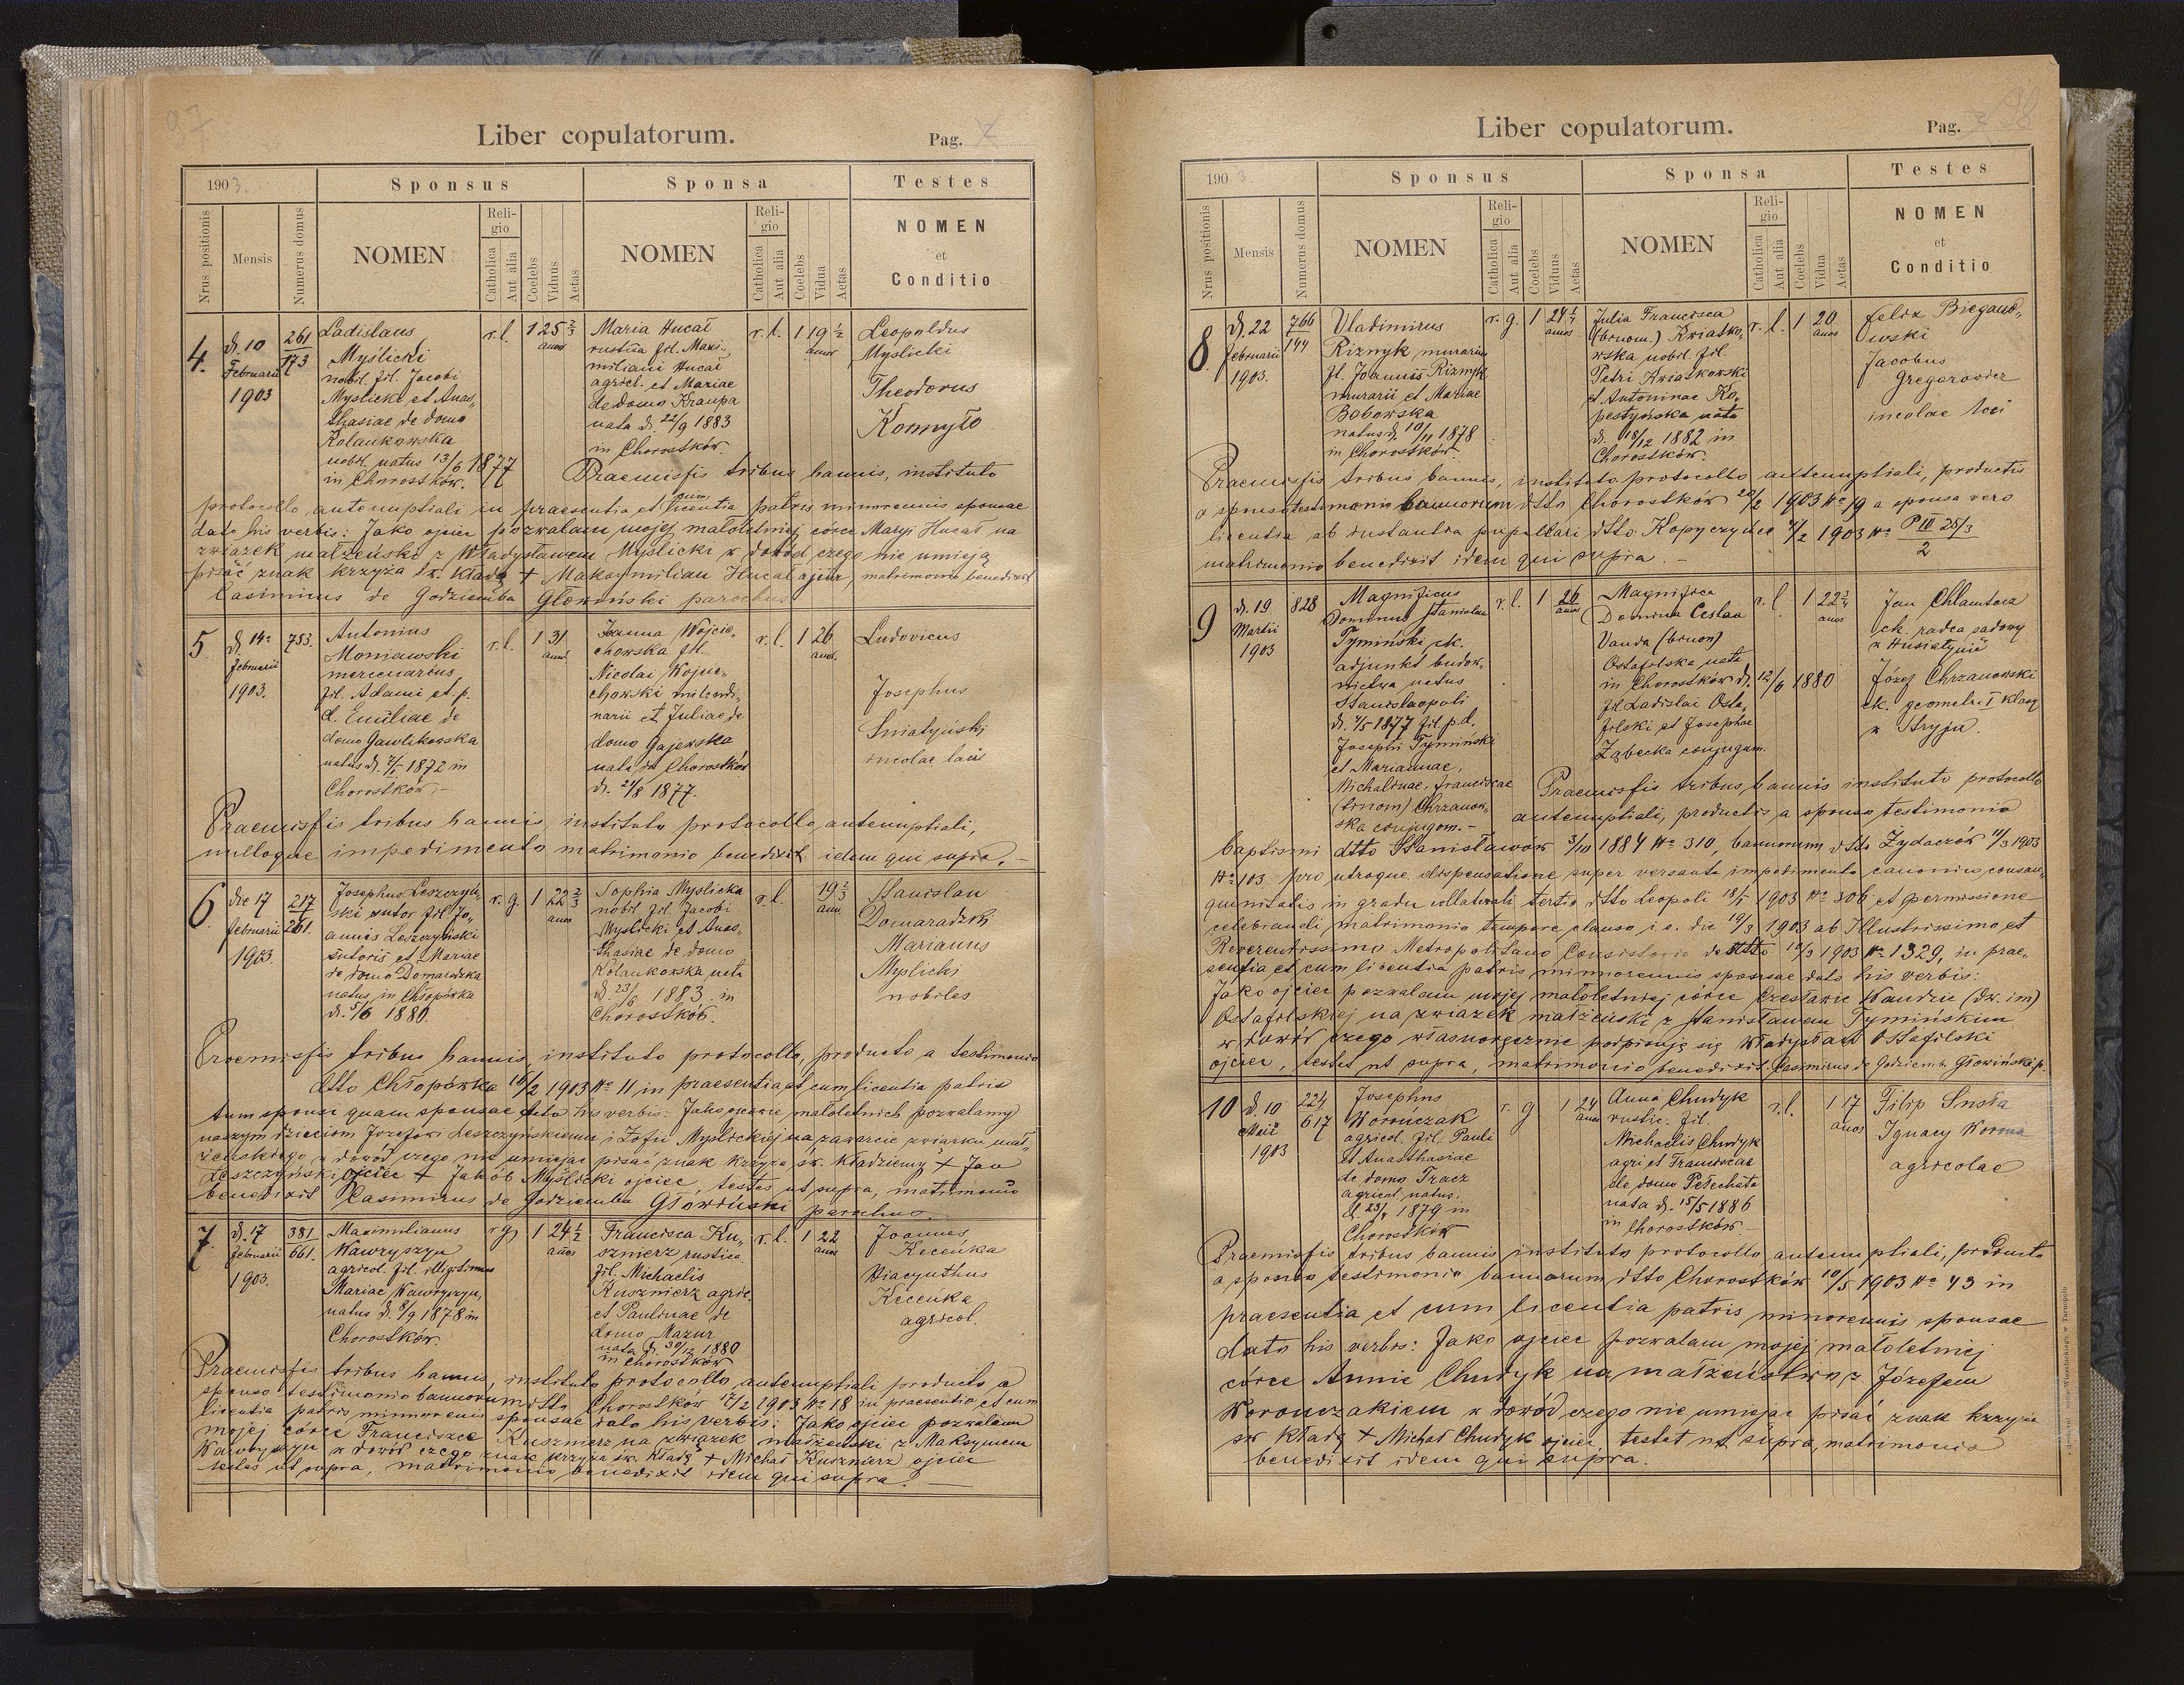 97
Liber copulatorum.
Pag.
1903.
Sponsus
Sponsa
Testes
Nrus positionis
Mensis
Numerus domus
NOMEN
Religio
Catholica
Aut alia
Coelebs
Viduus
Aetas
NOMEN
Religio
Catholica
Aut alia
Coelebs
Vidua
Aetas
NOMEN
et
Conditio
4.
d. 10
Februarii
1903
261
173
Ladislaus
Myślicki
nobil. fil. Jacobi
Myslicki et Anas„
thasiae de domo
Kolankowska
nobil. natus 13/6 1877
in Chorostków.
r. l.
1
25 2/3
annor
Maria Hucał
rustica fil. Maxi„
miliani Hucał
agricl. et Mariae
de domo Kraupa
nata d. 22/9 1883
in Chorostków.
r. l.
1
19 1/2
annor
Leopoldus
Myslicki
Theodorus
Konmyło
Praemissis tribus bannis, instituto
protocollo antenuptiali in praesentia et cum licentia patris minorennis sponsae
dato his verbis: Jako ojciec pozwalam mojej małoletniej córce Maryi Hucał na
związek małżeński z Władysławem Myslicki w dowód czego nie umieją
pisać znak krzyża św. kładę + Maksymilian Hucał ojciec, matrimonio benedixit
Casimirus de Godziemba Głowiński parochus
5.
d. 14
Februarii
1903.
753.
Antonius
Moniawski
mercenarius
fil. Adami et p.
d. Emiliae de
domo Gawlikowska
natus d. 7/1 1872 in
Chorostków.-
r. l.
1
31
annor
Joanna Wojcie„
chowska fil.
Nicolai Wojcie„
chowski
narii et Juliae de
domo Gajewska
nata in Chorostków
d. 21/8 1877.
r. l.
1
26
annor.
Ludovicus
Josephus
Sniatyński
incolae loci
Praemissis tribus bannis, instituto protocollo antenuptiali,
nulloque impedimento matrimonio benedixit idem qui supra.-
6
die 17
Februarii
1903.
217
261.
Josephus Leszczyń„
ski sutor fil. Jo„
annis Leszczyński
sutoris et Mariae
de domo Domaradzka
natus in Chłopówka
d. 5/6 1880.
r. g.
1
22 2/3
annor
Sophia Myslicka
nobil. fil. Jacobi
Myslicki et Anas„
thasiae de domo
Kolankowska nata
d. 23/6 1883 in
Chorostków.
r. l.
19 2/3
ann.
Stanislau
Domaradzki
Marianus
Myslicki
nobiles
Praemissis tribus bannis, instituto protocollo, producto a testimonio
dtto Chłopówka 16/2 1903 No 11 in praesentia et cum licentia patris
tum sponsi quam sponsae dato his verbis: Jako ojcowie małoletnich pozwalamy
naszym dzieciom Józefowi Leszczyńskiemu i Zofii Myslickiej na zawarcie związku mał„
żeńskiego w dowód czego nie umiejąc pisać znak krzyża św. kładziemy + Jan
Leszczyński ojciec + Jakób Myślicki ojciec, testes ut supra, matrimonio
benedixit Casimirus de Godziemba Głowiński parochus.
7.
d. 17
Februarii
1903.
381
661.
Maximilianus
Wawryszyn
agricol. fil. illegitimus
Mariae Wawryszyn,
natus d. 8/9 1878 in
Chorostków.
r g
1
24 1/2
annor
Francisca Ku„
sznierz rustica
fil. Michaelis
Kusznierz agric.
et Paulinae de
domo Mazur
nata d. 30/12 1880
in Chorostków
r. l.
1
22
annor
Joannes
Kecenka
Hiacynthus
Kecenka
agricol.
Praemissis tribus bannis, instituto protocollo antenuptiali producto a
sponso testimonio bannorum dtto Chorostków 17/2 1903 No 18 in praesentia et cum
licentia patris minorennis sponsae dato his verbis: Jako ojciec pozwalam
mojej córce Franciszce Kusznierz na związek małżeński z Maksymem
Wawryszyn w dowód czego znak krzyża św. kładę + Michał Kusznierz ojciec
testes ut supra, matrimonio benedixit idem qui supra.-
98
Liber copulatorum.
Pag.
1903.
Sponsus
Sponsa
Testes
Nrus positionis
Mensis
Numerus domus
NOMEN
Religio
Catholica
Aut alia
Coelebs
Viduus
Aetas
NOMEN
Religio
Catholica
Aut alia
Coelebs
Vidua
Aetas
NOMEN
et
Conditio
8
d. 22
Februarii
1903.
766
144
Vladimirus
Riznyk murarius
fl. Joannis Riznyk
murarii et Mariae
Bobowska
natus d. 10/11 1878
in Chorostków.
r. g.
1
24 1/4
annor
Julia Francisca
(binom.) Kwiatko„
wska nobil. fil.
Petri Kwiatkowski
et Antoninae Ko„
pestyńska nata
d. 18/12 1882 in
Chorostków.
r. l.
1
20
annor
Felix Biegano„
wski
Jacobus
Gregorowicz
incolae loci
Praemissis tribus bannis, instituto protocollo antenuptiali, productis
a sponso testimonio bannorum dtto Chorostków 22/2 1903 No 19 a sponsa vero
licentia ab instantia pupillari dtto Kopyczyńce 7/2 1903 No P III 25/3
2
matrimonio benedixit idem qui supra.-
9
d. 19
Martii
1903
828
Magnificus
Dominus Stanislau
Tymiński ck.
adjunkt budow„
nictwa natus
Stanislaopoli
d. 7/5 1877 fil. p.d.
Josephi Tymiński
et Mariannae,
Michalinae, Franciscae
(trinom) Chrzanow„
ska conjugum.-
r. l.
1
26
annor
Magnifica
Domina Ceslaa
Vanda (binom)
Ostafilska nata
in Chorostków d. 12/6 1880
fil. Ladislai Osta„
filski et Josephae
Ząbecka conjugum.
r. l
1
22 3/4
annor
Jan Chlamtacz
ck. radca sądowy
w Husiatynie
Józef Chrzanowski
ck. geometr. I klasy
w Stryju.
Praemissis tribus bannis instituto protocollo
antenuptiali, productis a sponso testimonio
baptismi dtto Stanisławów 3/10 1884 No 310, bannorum dtto Żydaczów 11/3 1903
No 103 pro utroque dispensatione super versante impedimento canonico consan„
guinitatis in gradu collaterali tertio dtto Leopoli 18/1 1903 No 306 et permissione
celebrandi matrimonio tempore clauso i. e. die 19/3 1903 ab Illustrissimo et
Reverendissimo Metropolitano Consistorio de dtto 10/3 1903 No 1329, in prae„
sentia et cum licentia patris minorennis sponsae dato his verbis:
Jako ojciec pozwalam mojej małoletniej córce Czesławie Wandzie (dw. im)
Ostafilskiej na związek małżeński z Stanisławem Tymińskim
w dowód czego własnoręcznie podpisuję się Władysław Ostafilski
ojciec, testes ut supra, matrimonio benedixit Casimirus de Godziemba Głowiński p.
10
d. 10
Maii
1903
224
617
Josephus
Worończak
agricol. fil. Pauli
et Anasthasiae
de domo Tracz
agricol. natus.
d. 23/4 1879 in
Chorostków
r. g
1
24
annor
Anna Chudyk
rustic. fil.
Michaelis Chudyk
agri et Franciscae
de domo Petechata
nata d. 15/5 1886
in Chorostków
r. l.
1
17
annor
Filip Susła
Ignacy Worona
agricolae
Praemissis tribus bannis instituto protocollo antenuptiali, producto
a sponso testimonio bannorum dtto Chorostków 10/5 1903 No 43 in
praesentia et cum licentia patris minorennis sponsae
dato his verbis: Jako ojciec pozwalam mojej małoletniej
córce Annie Chudyk na małżeństwo z Józefem
Worończakiem w dowód czego nie umiejąc pisać znak krzyża
św kładę + Michał Chudyk ojciec, testes ut supra, matrimonio
benedixit idem qui supra.